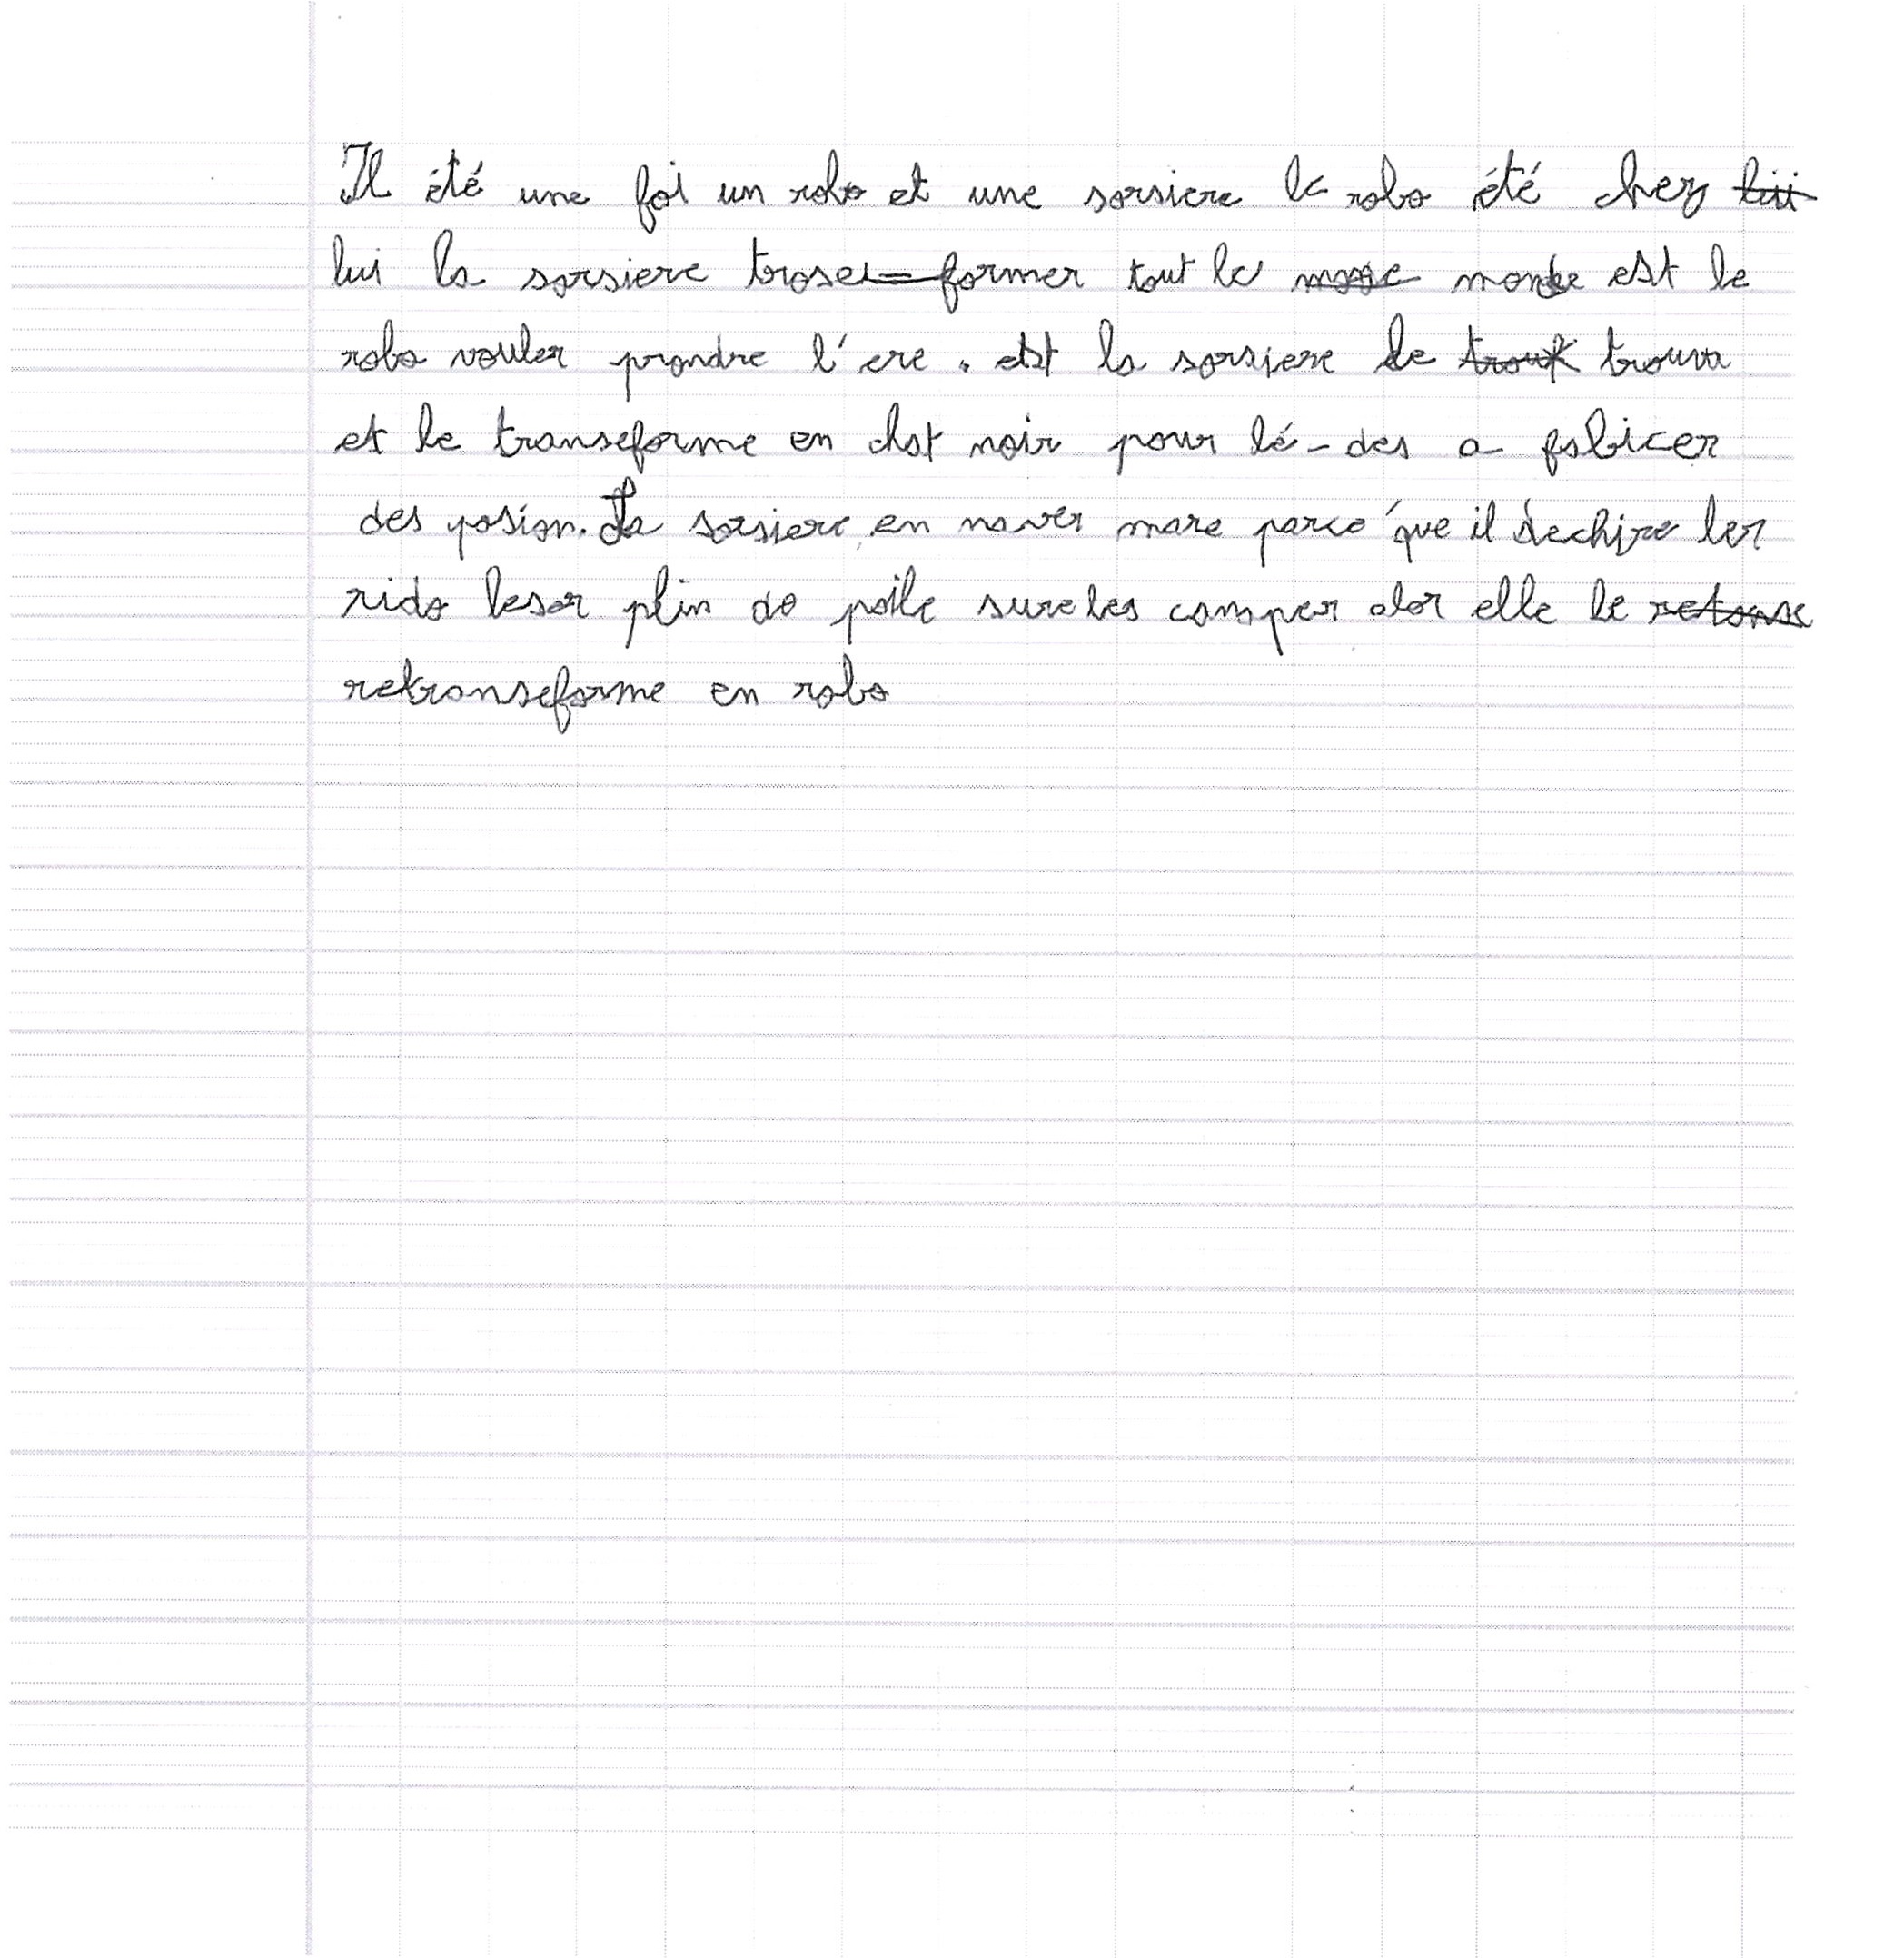 Il été une foi un robo et une sorsiere le robo été chez
lui la sorsiere trose former tout le monde est le
robo vouler prondre l'ere. est la sorsiere le trouva
et le transeforme en chat noir pour lé-des a fabicer
des posion. La sorsiere en naver mare parce que il dechire ler
rido leser plin de poile sure les canaper alor elle le
retranseforme en robo